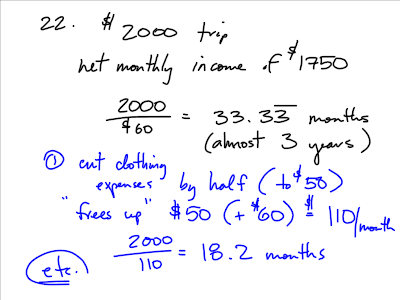 22. $2000 trip
net monthly income of $1750
2000/$60 = 33.33 months
(almost 3 years)
① cut clothing
expenses by half (to $50)
"frees up" $50 (+ $60) = $110/month
2000/110 = 18.2 months
etc.